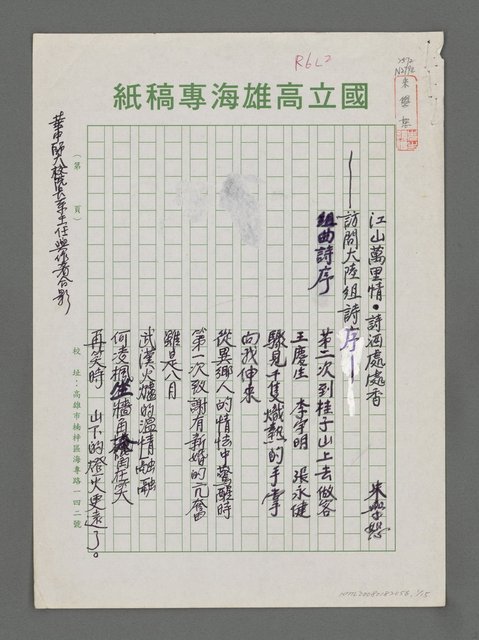 R6L2
國立高雄海專稿紙
江山萬里情·詩酒處處香
——訪問大陸組詩序——
朱學恕
組曲詩序
第二次到桂子山上去做客
王慶生 李宇明 張永健
驟見千隻熾熱的手掌
向我伸來
從異鄉人的情怯中驚醒時
第一次致謝有新婚的亢奮
雖是八月
武漢火爐的溫情融融
何凌桐生牆角在笑
再笑時 山下的燈火更遠了。
(第 頁)
校址:高雄市楠梓區海專路一四二號
華中師大校院長系主任與作者合影
NML20080182056, 1/15